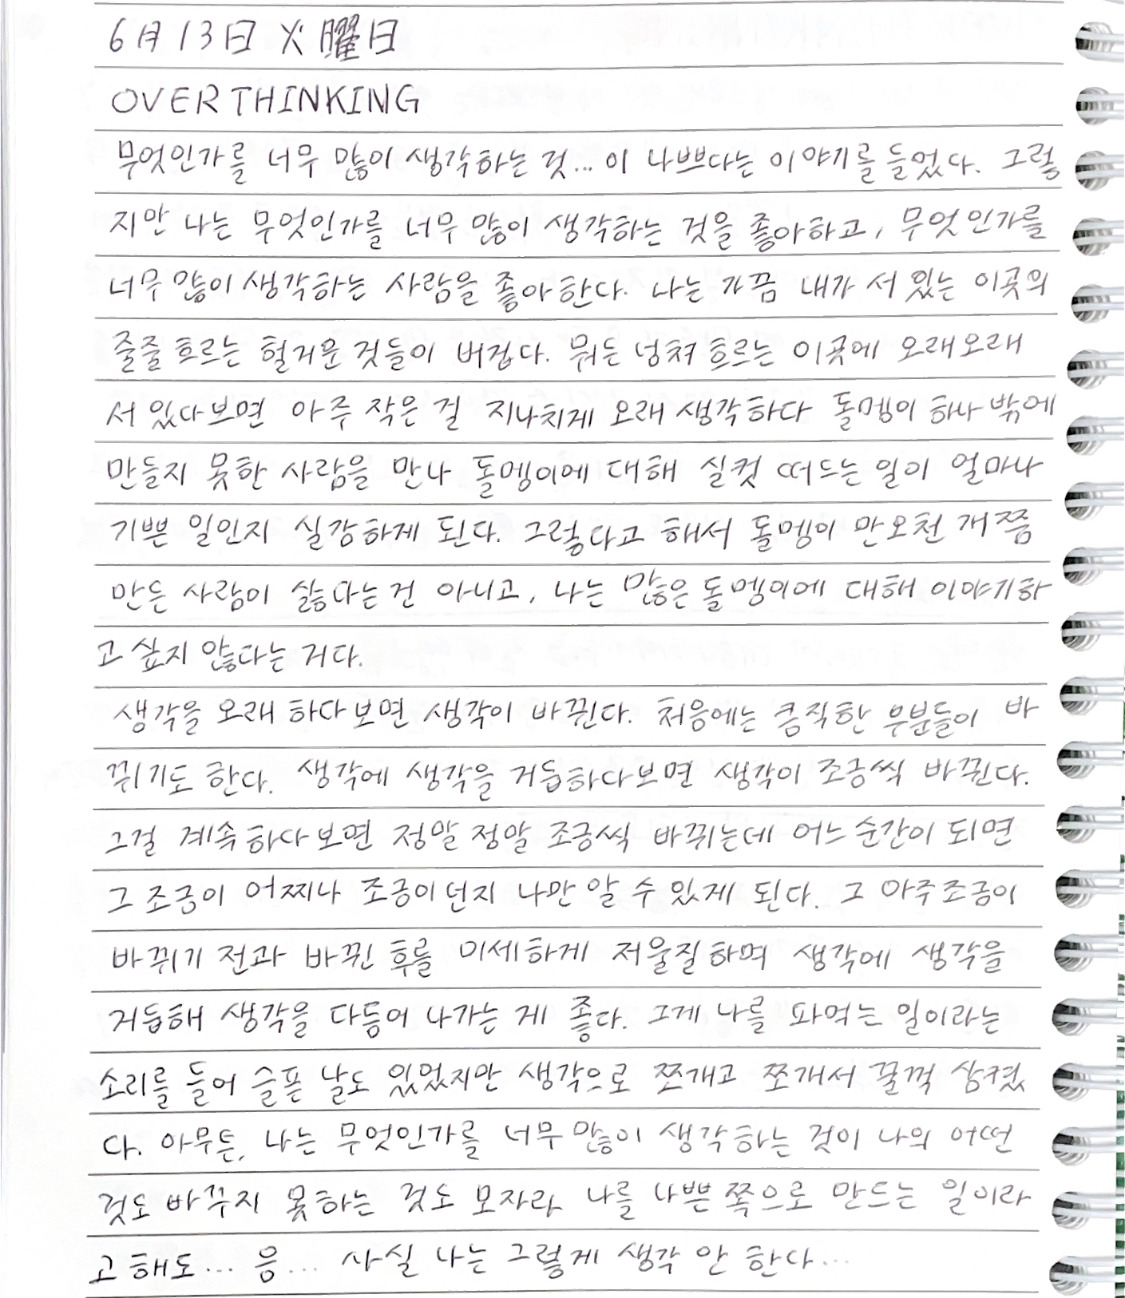 6月13日 火曜日
OVERTHINKING
무엇인가를 너무 많이 생각하는 것... 이 나쁘다는 이야기를 들었다. 그렇
지만 나는 무엇인가를 너무 많이 생각하는 것을 좋아하고, 무엇인가를
너무 많이 생각하는 사람을 좋아한다. 나는 가끔 내가 서 있는 이곳의
줄줄 흐르는 헐거운 것들이 버겁다. 뭐든 넘쳐 흐르는 이곳에 오래오래
서 있다보면 아주 작은 걸 지나치게 오래 생각하다 돌멩이 하나 밖에
만들지 못한 사람을 만나 돌멩이에 대해 실컷 떠드는 일이 얼마나
기쁜 일인지 실감하게 된다. 그렇다고 해서 돌멩이 만오천 개쯤
만든 사람이 싫다는 건 아니고, 나는 많은 돌멩이에 대해 이야기하
고 싶지 않다는 거다.
생각을 오래 하다보면 생각이 바뀐다. 처음에는 큼직한 부분들이 바
뀌기도 한다. 생각에 생각을 거듭하다보면 생각이 조금씩 바뀐다.
그걸 계속하다보면 정말 정말 조금씩 바뀌는데 어느 순간이 되면
그 조금이 어찌나 조금이던지 나만 알 수 있게 된다. 그 아주 조금이
바뀌기 전과 바뀐 후를 미세하게 저울질하며 생각에 생각을
거듭해 생각을 다듬어 나가는 게 좋다. 그게 나를 파먹는 일이라는
소리를 들어 슬픈 날도 있었지만 생각으로 쪼개고 쪼개서 꿀꺽 삼켰
다. 아무튼, 나는 무엇인가를 너무 많이 생각하는 것이 나의 어떤
것도 바꾸지 못하는 것도 모자라 나를 나쁜 쪽으로 만드는 일이라
고 해도... 음... 사실 나는 그렇게 생각 안 한다...